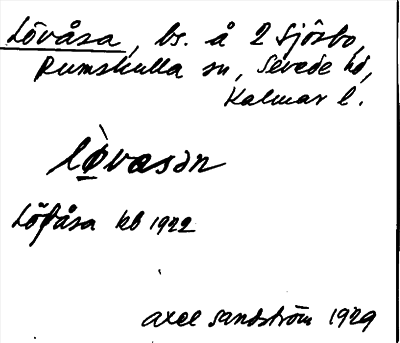 Lövåsa, bs. å 2 Sjösbo,
Rumskulla sn, Sevede hd,
Kalmar l.
lø̀vasən
Löfåsa kb 1922
Axel Sandström 1929